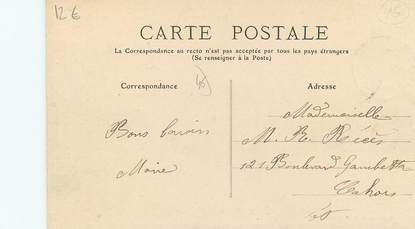 12 €
46
CARTE POSTALE
La Correspondance au recto n'est pas acceptée par tous les pays étrangers
(Se renseigner à la Poste)
Correspondance
46
Adresse
Bons baisers
Marie
Mademoiselle
M. R.
121 Boulevard Gambetta
Cahors